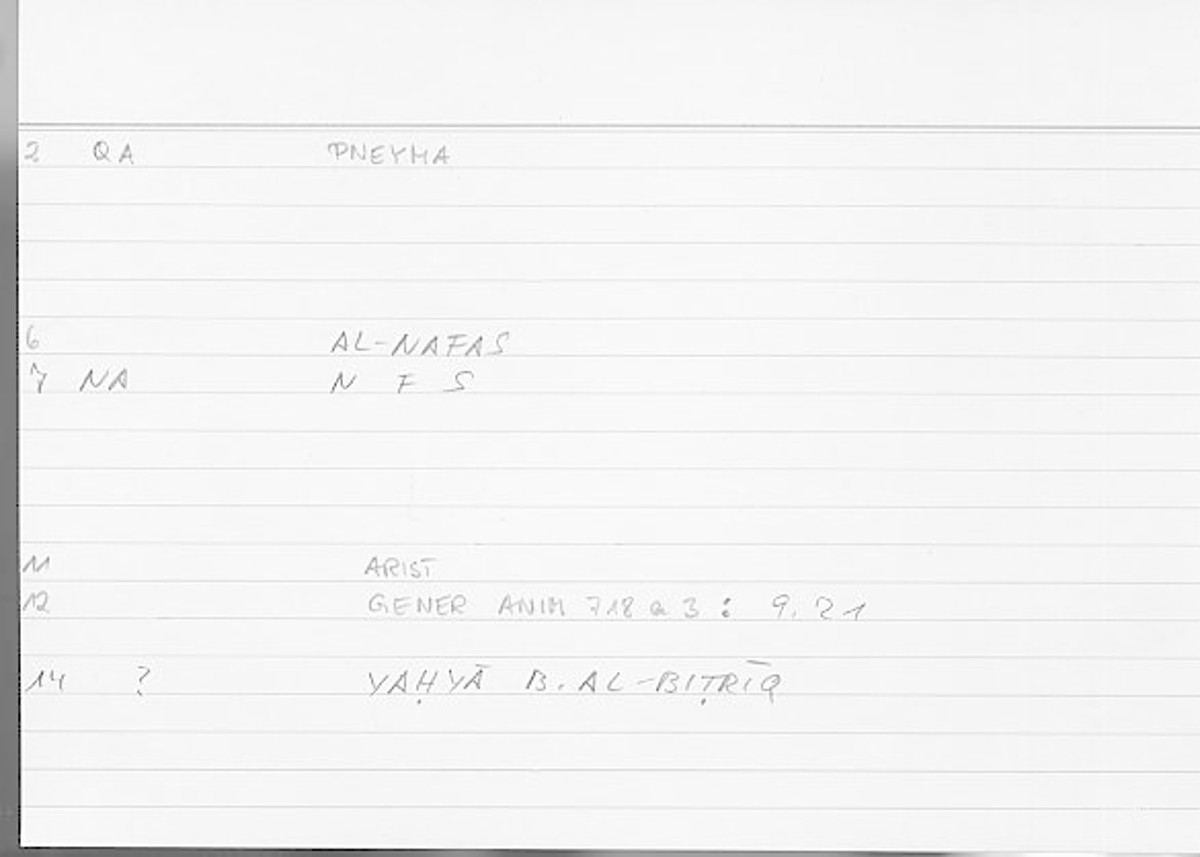 2 QA PNEYMA
6 AL-NAFAS
7 NA N F S
11 ARIST
12 GENER ANIM 718 a 3 : 9.21
14 ? YAḤYĀ B. AL-BIṬRĪQ